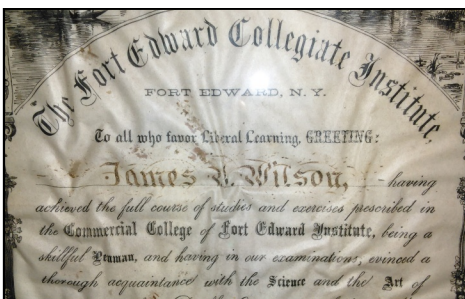 The Fort Edward Collegiate Institute,
FORT EDWARD, N. Y.
To all who favor Liberal Learning, GREETING:
James Wilson, having
achieved the full course of studies and exercises prescribed in
the Commercial College of Fort Edward Institute, being a
skillful Penman, and having in our examinations, evinced a
thorough acquaintance with the Science and the Art of